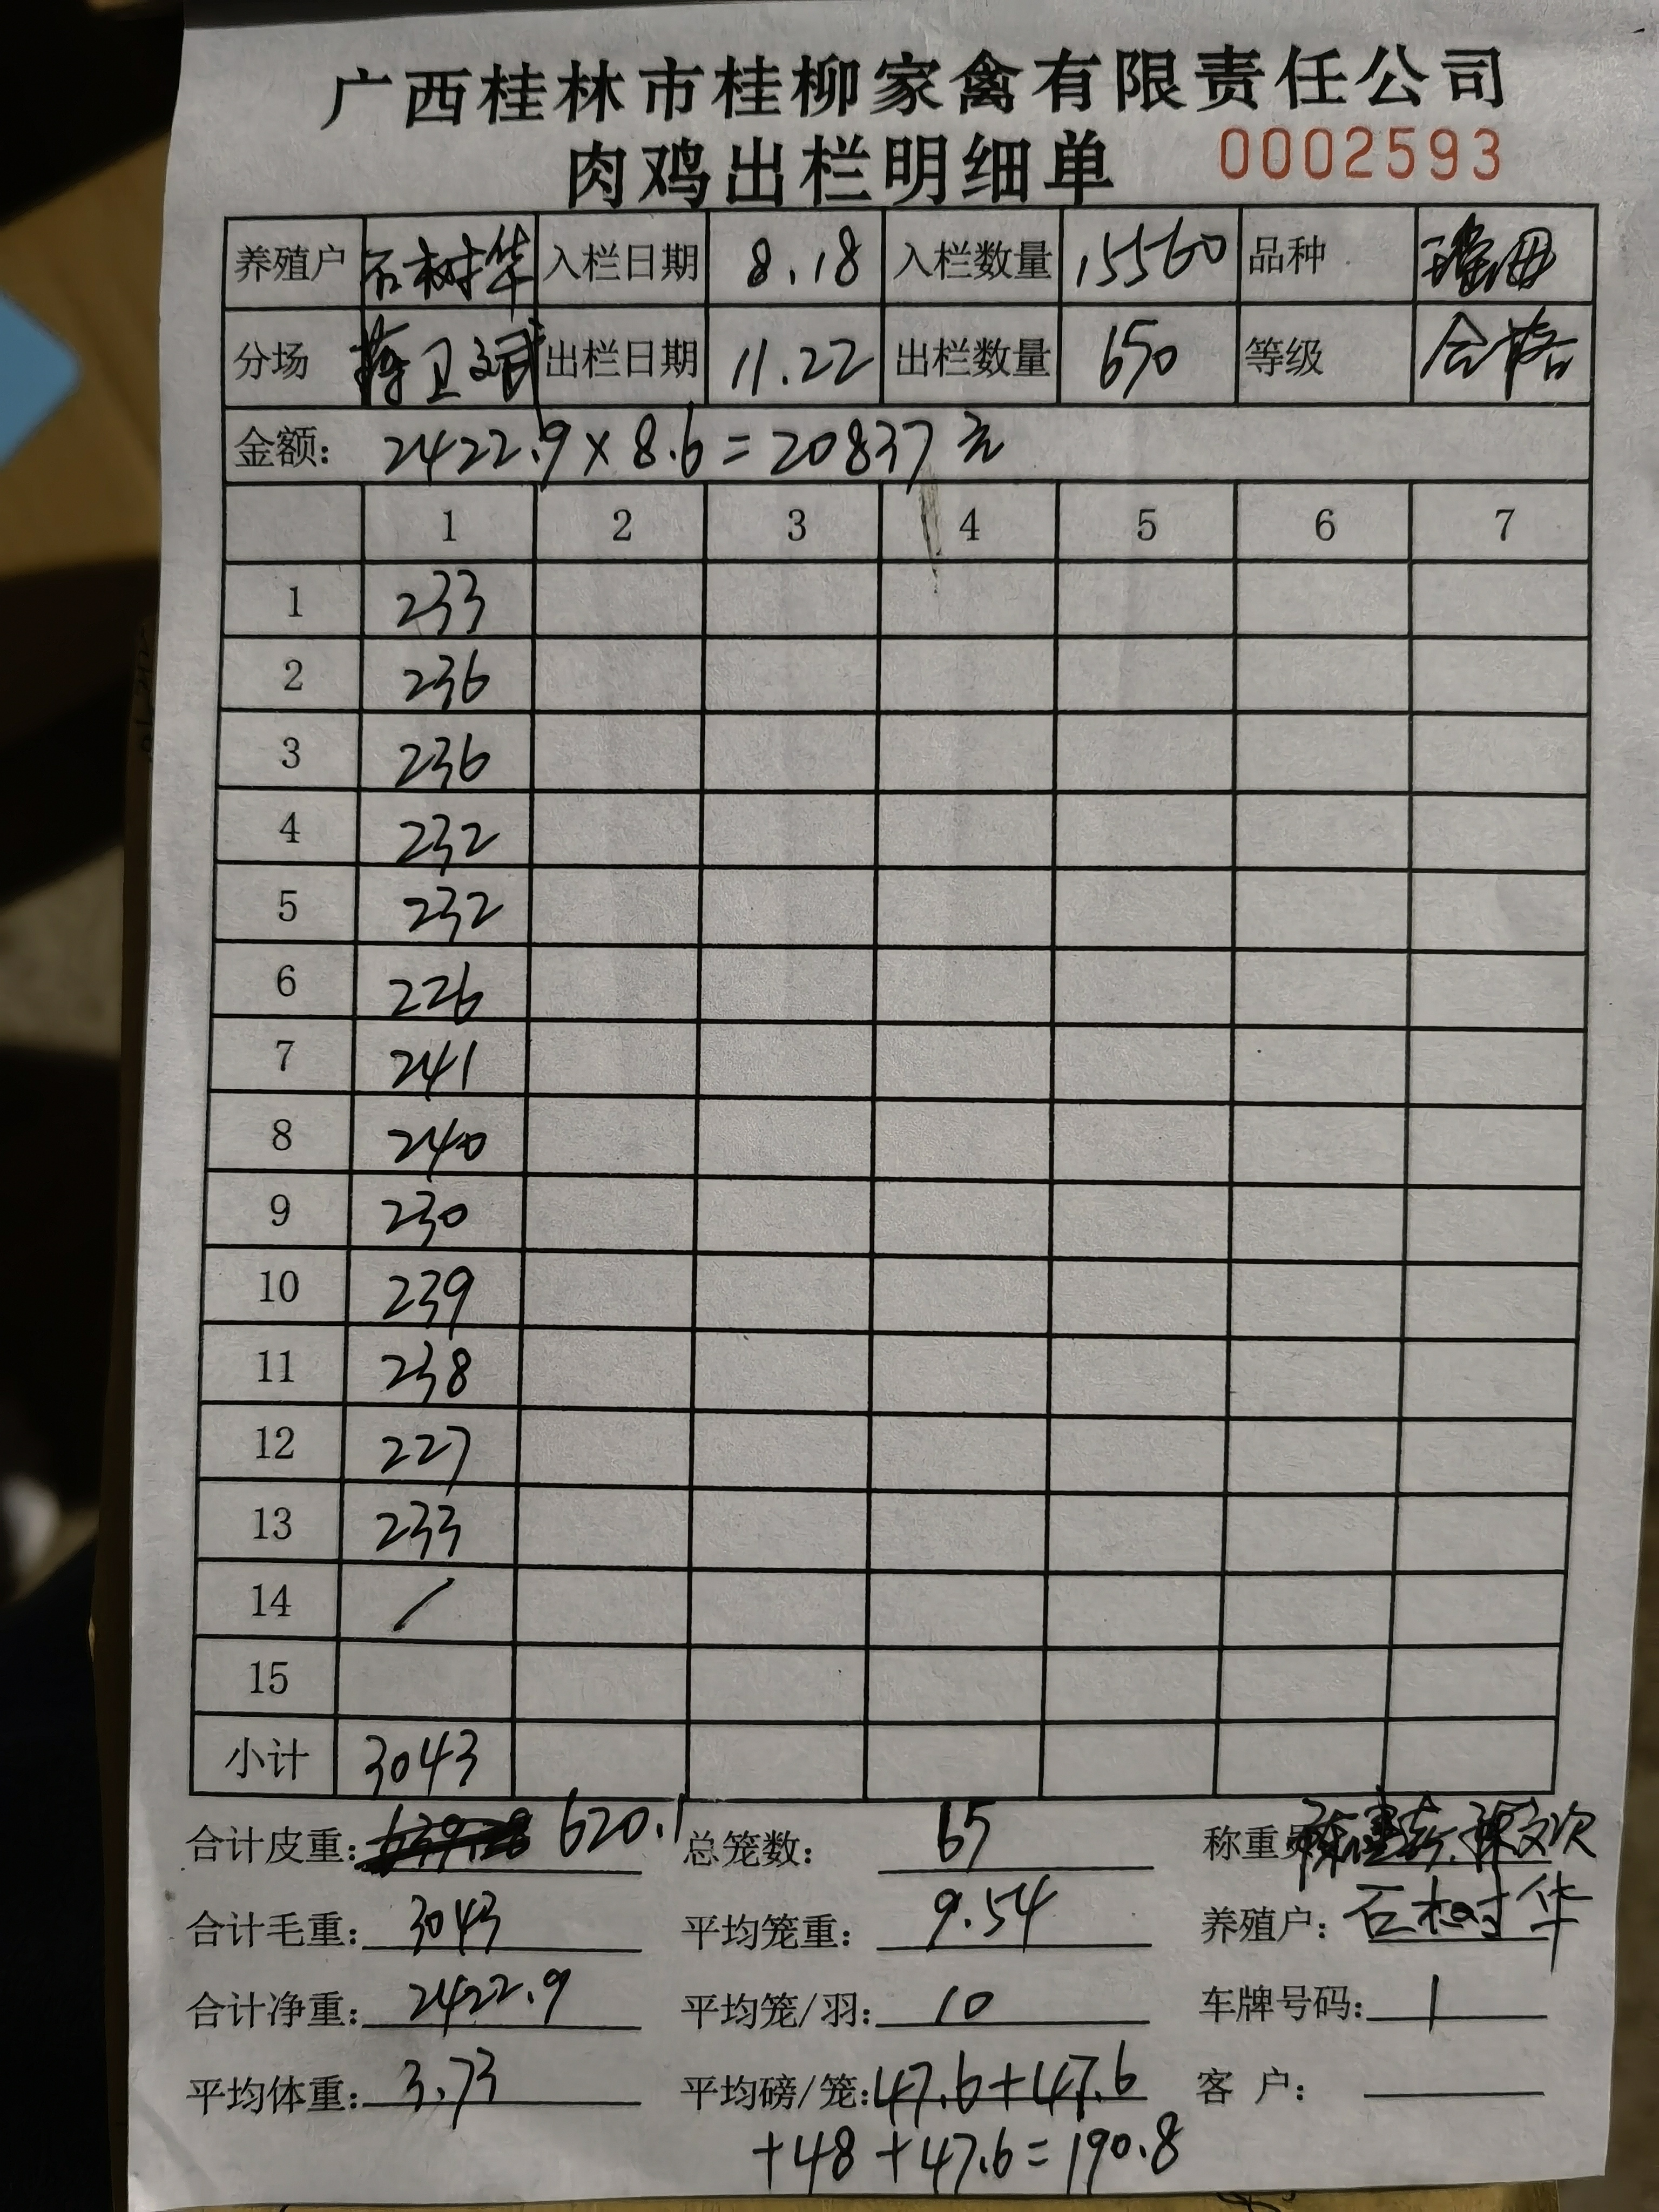 广西桂林市桂柳家禽有限责任公司
肉鸡出栏明细单 0002593
养殖户 石树华 入栏日期 8.18 入栏数量 15560 品种
分场 蒋卫斌 出栏日期 11.22 出栏数量 650 等级 合格
金额: 2422.9×8.6=20837元
1 2 3 4 5 6 7
1 233
2 236
3 236
4 232
5 232
6 226
7 241
8 240
9 230
10 239
11 238
12 227
13 233
14 /
15
小计 3043
合计皮重: 620.1 总笼数: 65 称重员
合计毛重: 3043 平均笼重: 9.54 养殖户: 石树华
合计净重: 2422.9 平均笼/羽: 10 车牌号码: 1
平均体重: 3.73 平均磅/笼: 47.6+47.6 客 户:
+48+47.6=190.8